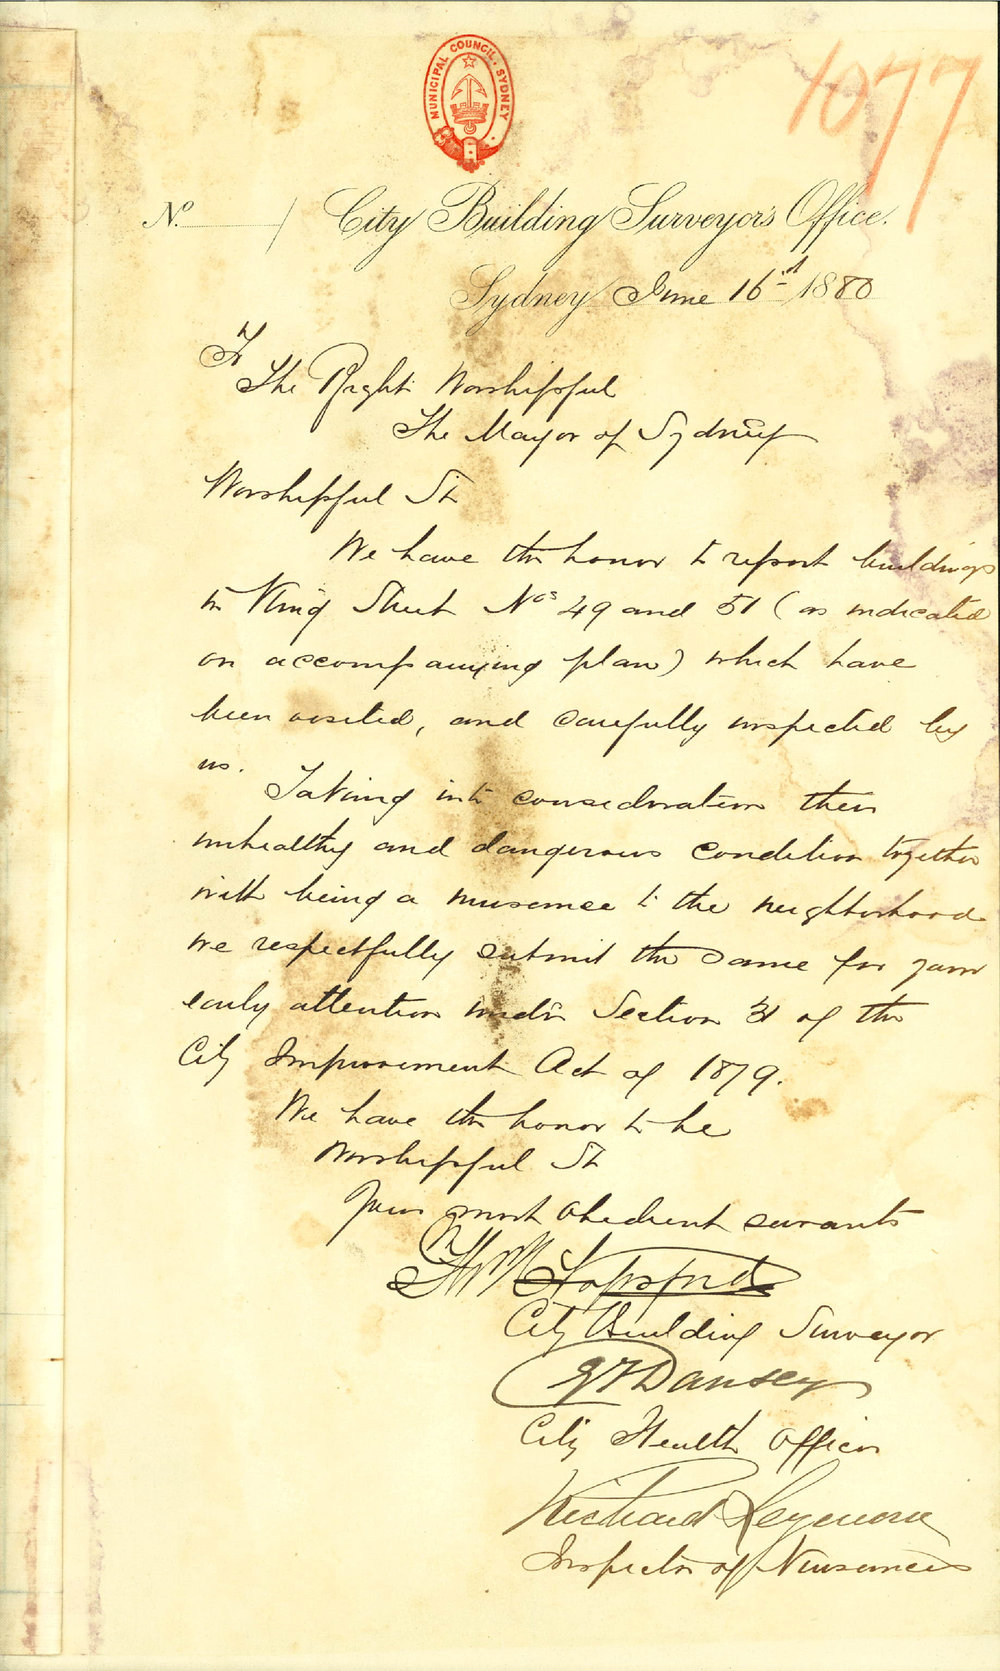 MUNICIPAL COUNCIL. SYDNEY
1077
No. / City Building Surveyor's Office.
Sydney June 16st 1880
To
The Right Worshipful
The Mayor of Sydney
Worshipful Sir
We have the honor to report buildings
in King Street Nos 49 and 51 (as indicated
on accompanying plan) which have
been visited, and carefully inspected by
us. Taking into consideration their
unhealthy and dangerous condition together
with being a nuisance to the neighborhood
we respectfully submit the same for your
early attention under Section 31 of the
City Improvement Act of 1879.
We have the honor to be
Worshipful Sir
Your most obedient servants
City Building Surveyor
G F Dansey
City Health Officer
Richard Seymour
Inspector of Nuisances